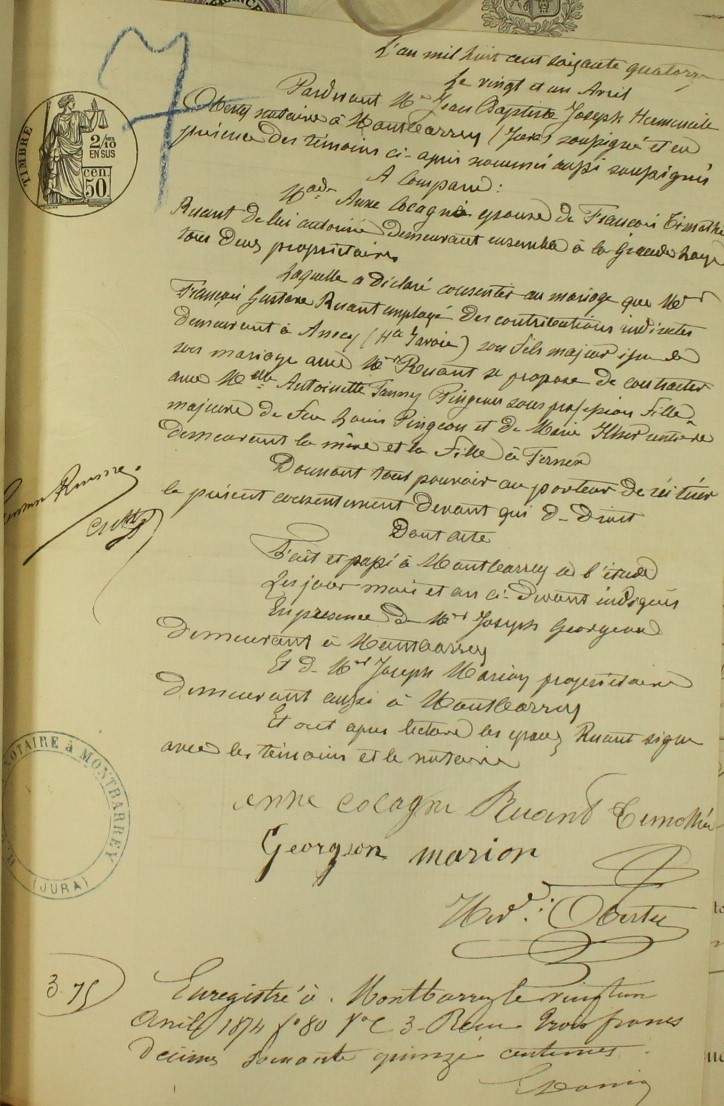 L'an mil huit cent soixante quatorze
Le vingt et un Avril
Pardevant Me Jean Baptiste Joseph
notaire à Montbarrey (Jura) soussigné et en
présence des témoins ci-après nommés aussi soussignés
A Comparu :
Made Anne Cocagne épouse de François Timothée
Ruant de lui autorisée demeurant ensemble à la Grande Loye
tous deux propriétaires
Laquelle a déclaré consentir au mariage que Mr
François Gustave Ruant employé des contributions indirectes
demeurant à Annecy (Hte Savoie) son fils majeur issu de
son mariage avec Mr Ruant se propose de contracter
avec Melle Antoinette Fanny Pingeon sans profession fille
majeure de feu Louis Pingeon et de Marie
demeurant la mère et la fille à
Donnant tout pouvoir au porteur de réitérer
le présent consentement devant qui de Droit
Dont acte
Fait et passé à Montbarrey en l'étude
Les jour mois et an ci-devant indiqués
En présence de Mr Joseph Georgeon
demeurant à Montbarrey
Et de Mr Joseph Marion propriétaire
demeurant aussi à Montbarrey
Et ont après lecture les époux Ruant signé
avec les témoins et le notaire
anne cocagne Ruant Timothée
Georgeon marion
Enregistré à Montbarrey le vingt un
Avril 1874 fo 80 Vo C 3 Reçu trois francs
décimes soixante quinze centimes.
3 75
TIMBRE
2/10
EN SUS
50 cen
NOTAIRE à MONTBARREY
(JURA)